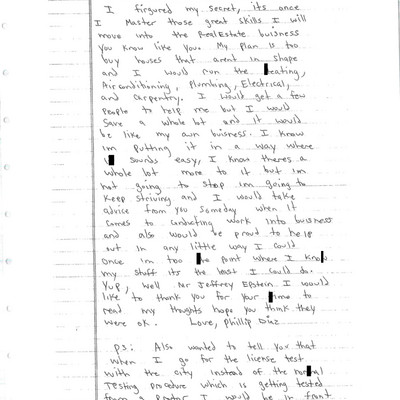 I firgured my secret, its once
I Master those great skills I will
move into the RealEstate buisness
you know like you. My plan is too
buy houses that arent in shape
and I would run the eating,
Airconditioning, Plumbing, Electrical,
and Carpentry. I would get a few
people to help me but I would
Save a whole lot and it would
be like my own buisness. I know
im putting it in a way where
sounds easy, I know theres a
whole lot more to it but im
not going to stop im going to
Keep striving and I would take
advice from you someday when it
comes to conducting work into business
and also would be proud to help
out in any little way I could
once im too he point where I kno
my stuff its the least I could do.
Yup, well Mr Jeffrey Epstein I would
like to thank you for your ime to
read my thoughts hope you think they
were ok. Love, Phillip Diaz
PS: Also wanted to tell you that
when I go for the license test
with the city instead of the no al
Testing procedure which is getting tested
from a Proctor I would be in front